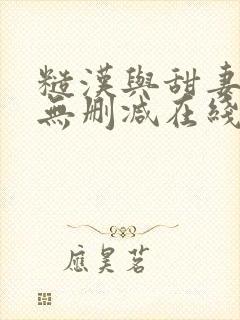 糙漢與甜妻
無刪減在綫
應昊茗